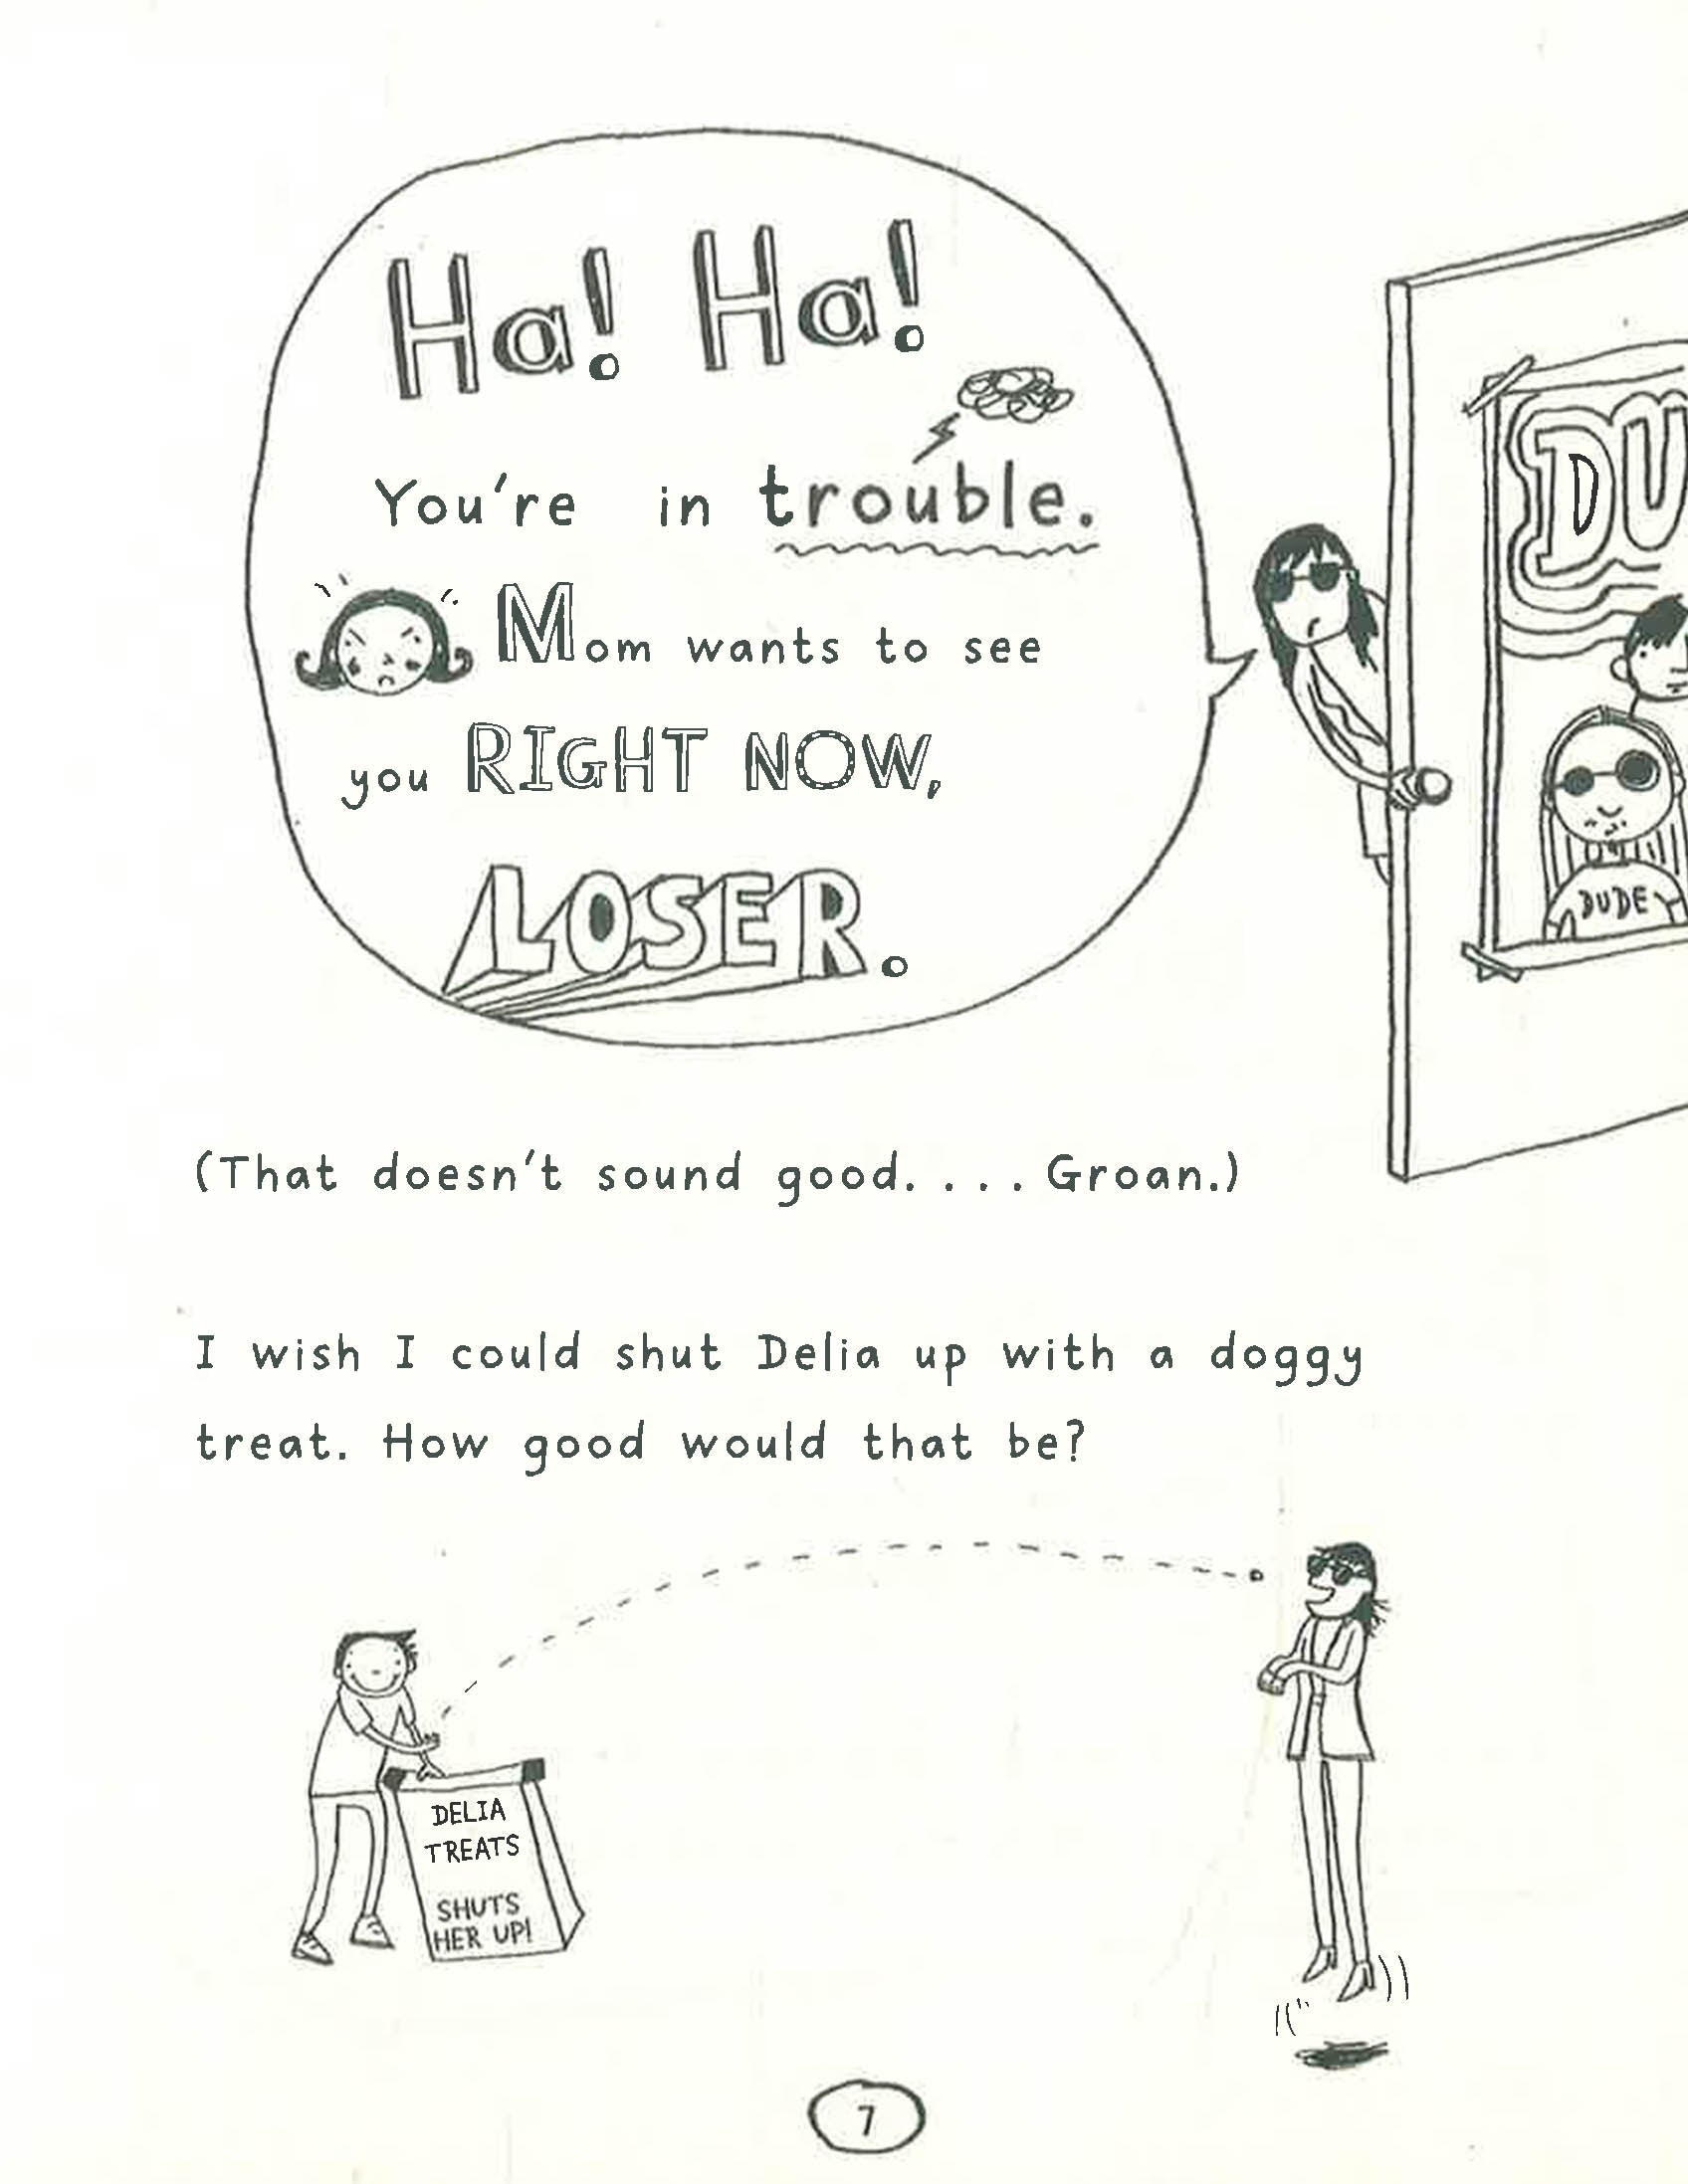 Ha! Ha!
You're in trouble.
Mom wants to see
you RIGHT NOW,
LOSER.
DU
DUDE
(That doesn't sound good. . . . Groan.)
I wish I could shut Delia up with a doggy
treat. How good would that be?
DELIA
TREATS
SHUTS
HER UP!
7